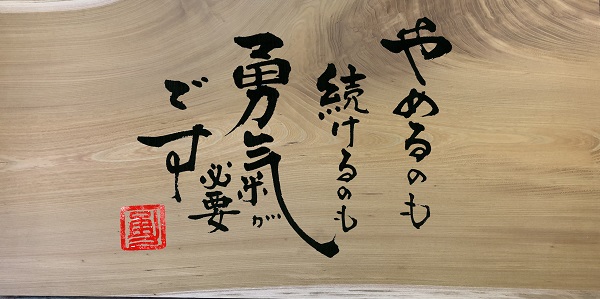 やめるのも
続けるのも
勇気が
必要
です